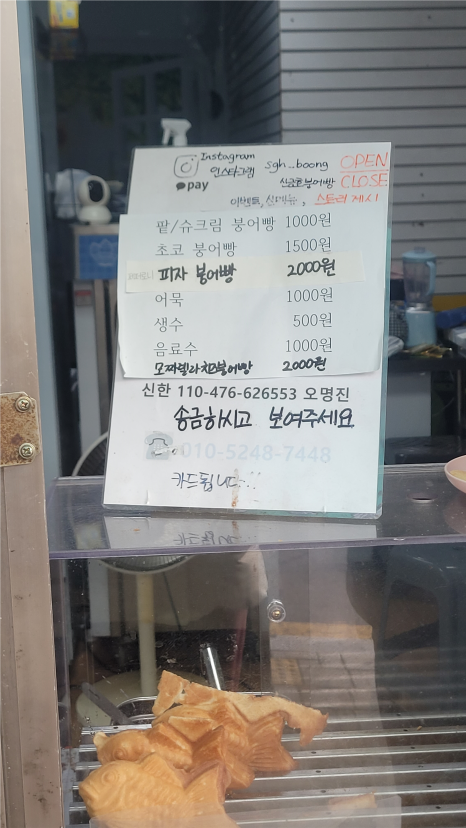 Instagram
인스타그램 sgh_boong OPEN
pay 신금호붕어빵 CLOSE
이벤트, 신메뉴, 스토리 게시
팥/슈크림 붕어빵 1000원
초코 붕어빵 1500원
피자 붕어빵 2000원
어묵 1000원
생수 500원
음료수 1000원
모짜렐라치즈붕어빵 2000원
신한 110-476-626553 오명진
송금하시고 보여주세요
010-5248-7448
카드됩니다